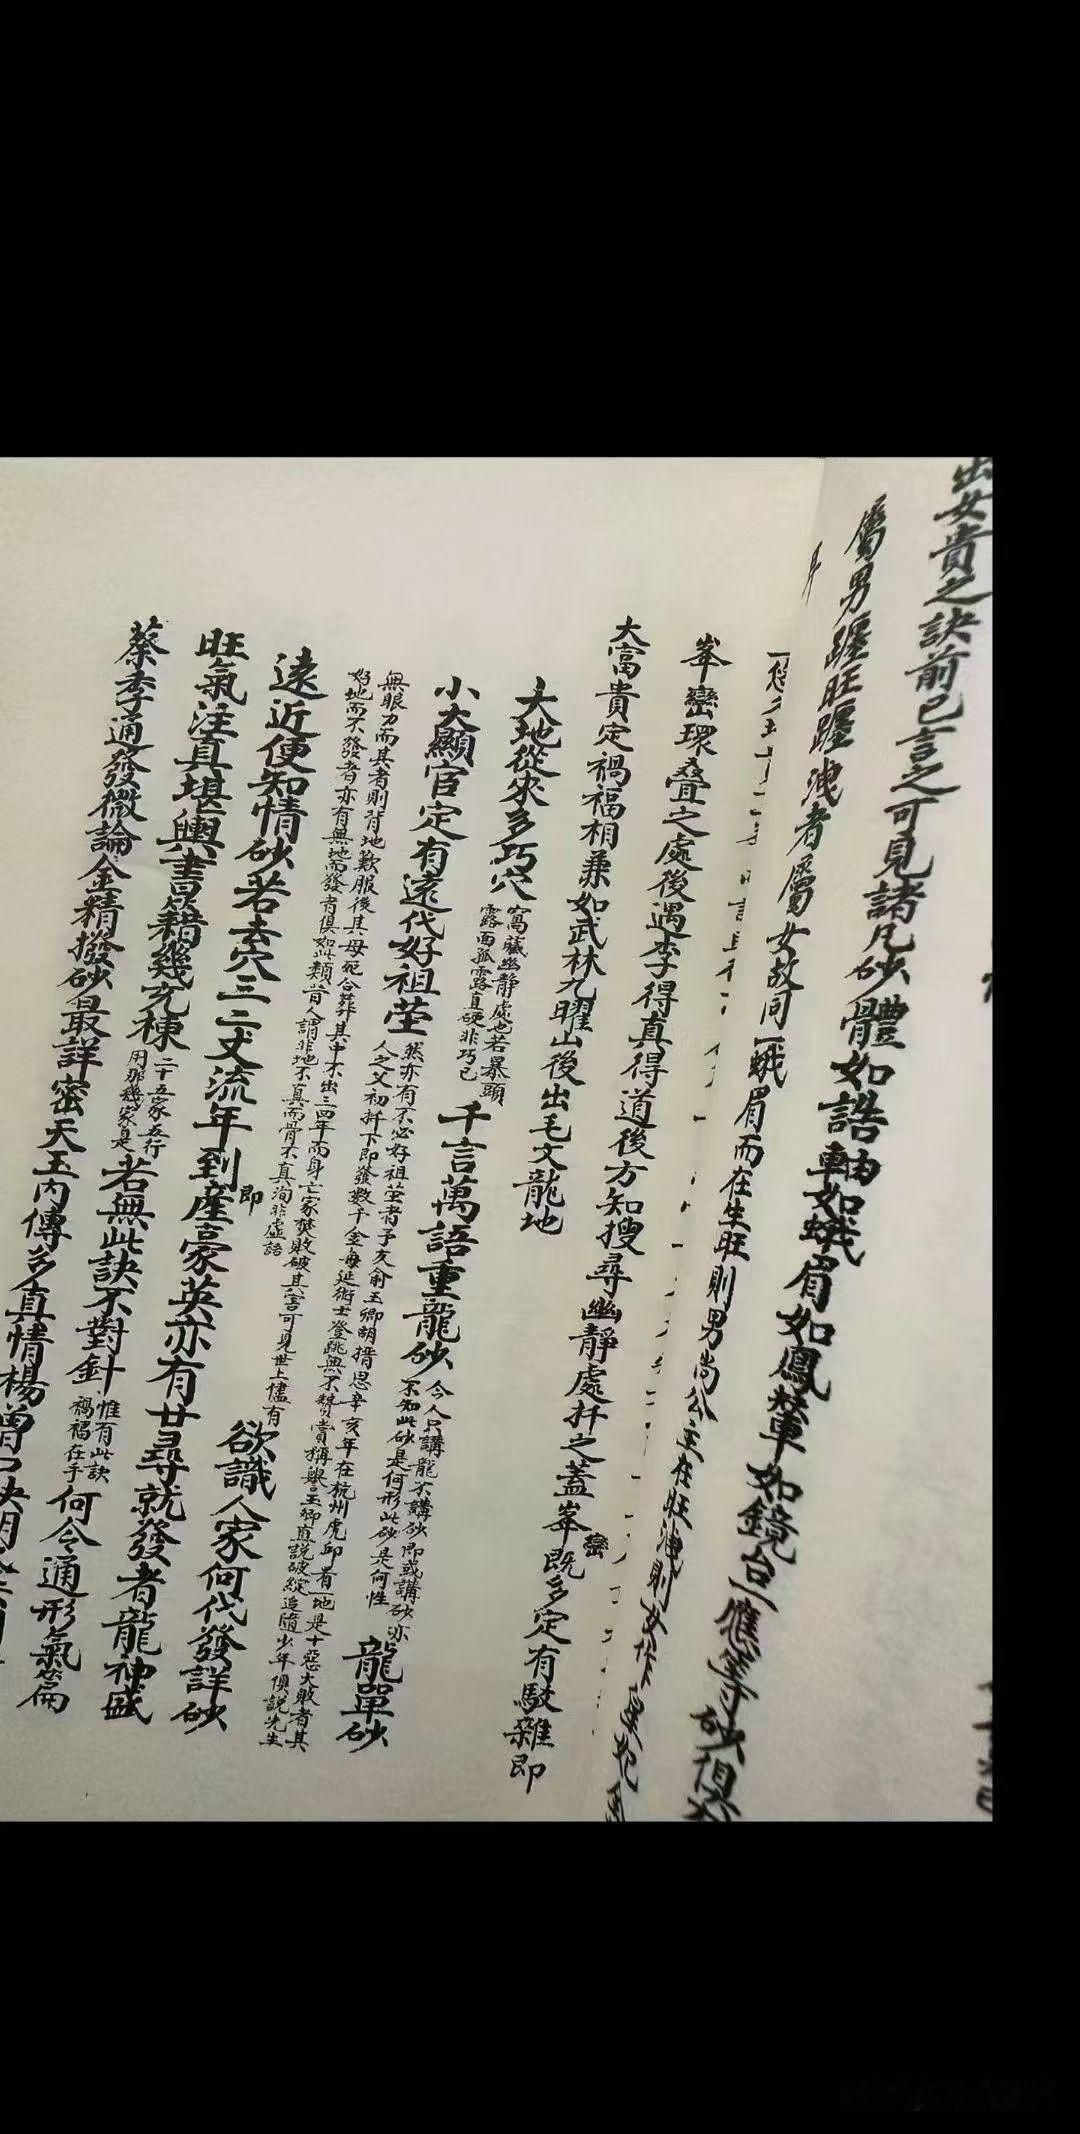 出女貴之訣前已言之可見諸凡砂體如誥軸如蛾眉如鳳輦如鏡台一應等砂俱
屬男躔旺躔洩者屬女故同一蛾眉而在生旺則男尚公主在旺洩則女作皇妃
峯巒環疊之處後遇李得真得道後方知搜尋幽靜處扦之蓋峯巒既多定有駁雜即
大富貴定禍福相兼如武林九曜山後出毛文龍地
大地從來多巧穴
窩藏幽靜處也若暴頭
露面孤露直硬非巧已
千言萬語重龍砂
今人只講龍不講砂即或講砂亦
不知此砂是何形此砂是何性
龍單砂
小大顯官定有遠代好祖塋
然亦有不必好祖塋者予友俞玉卿胡搢思辛亥年在杭州虎邱看一地是十惡大敗者其
人之父初扦下即發數千金每延術士登眺無不贊賞稱譽玉卿直說破綻追隨少年俱說先生
無眼力而其者則背地歎服後其母死合葬其中不出三四年而身亡家焚敗破其害可見世上儘有
好地而不發者亦有無地而發者俱如此類昔人謂非地不真而骨不真洵非虛語
欲識人家何代發詳砂
遠近便知情砂若去穴三二丈流年到即產豪英亦有廿尋就發者龍神盛
旺氣注真堪輿書籍幾充棟
二十五家五行
用那幾家是
若無此訣不對針
惟有此訣
禍福在手
何令通形氣篇
蔡季通發微論金精撥砂最詳密天玉內傳多真情楊曾口訣